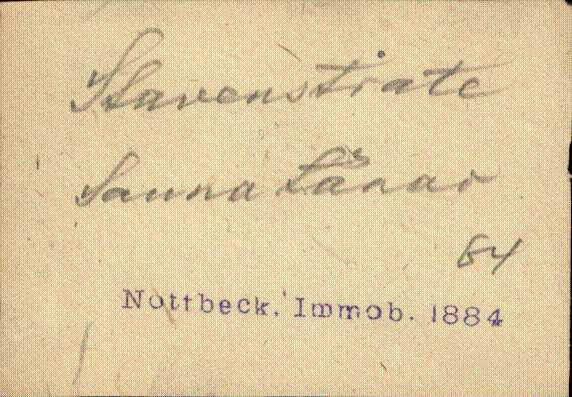 Stavenstrate
Sauna tänav
64
Nottbeck. Immob. 1884